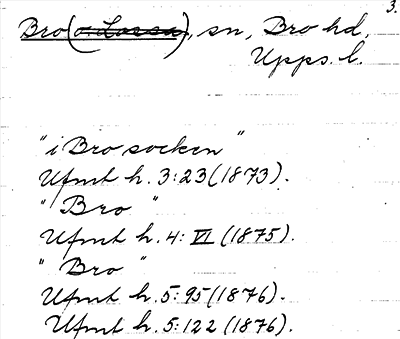 3.
Bro (o. Lossa), sn, Bro hd,
Upps. l.
"i Bro socken"
Ufmt h. 3:23 (1873).
"Bro"
Ufmt h. 4: VI (1875).
"Bro"
Ufmt h. 5:95 (1876).
Ufmt h. 5:122 (1876).